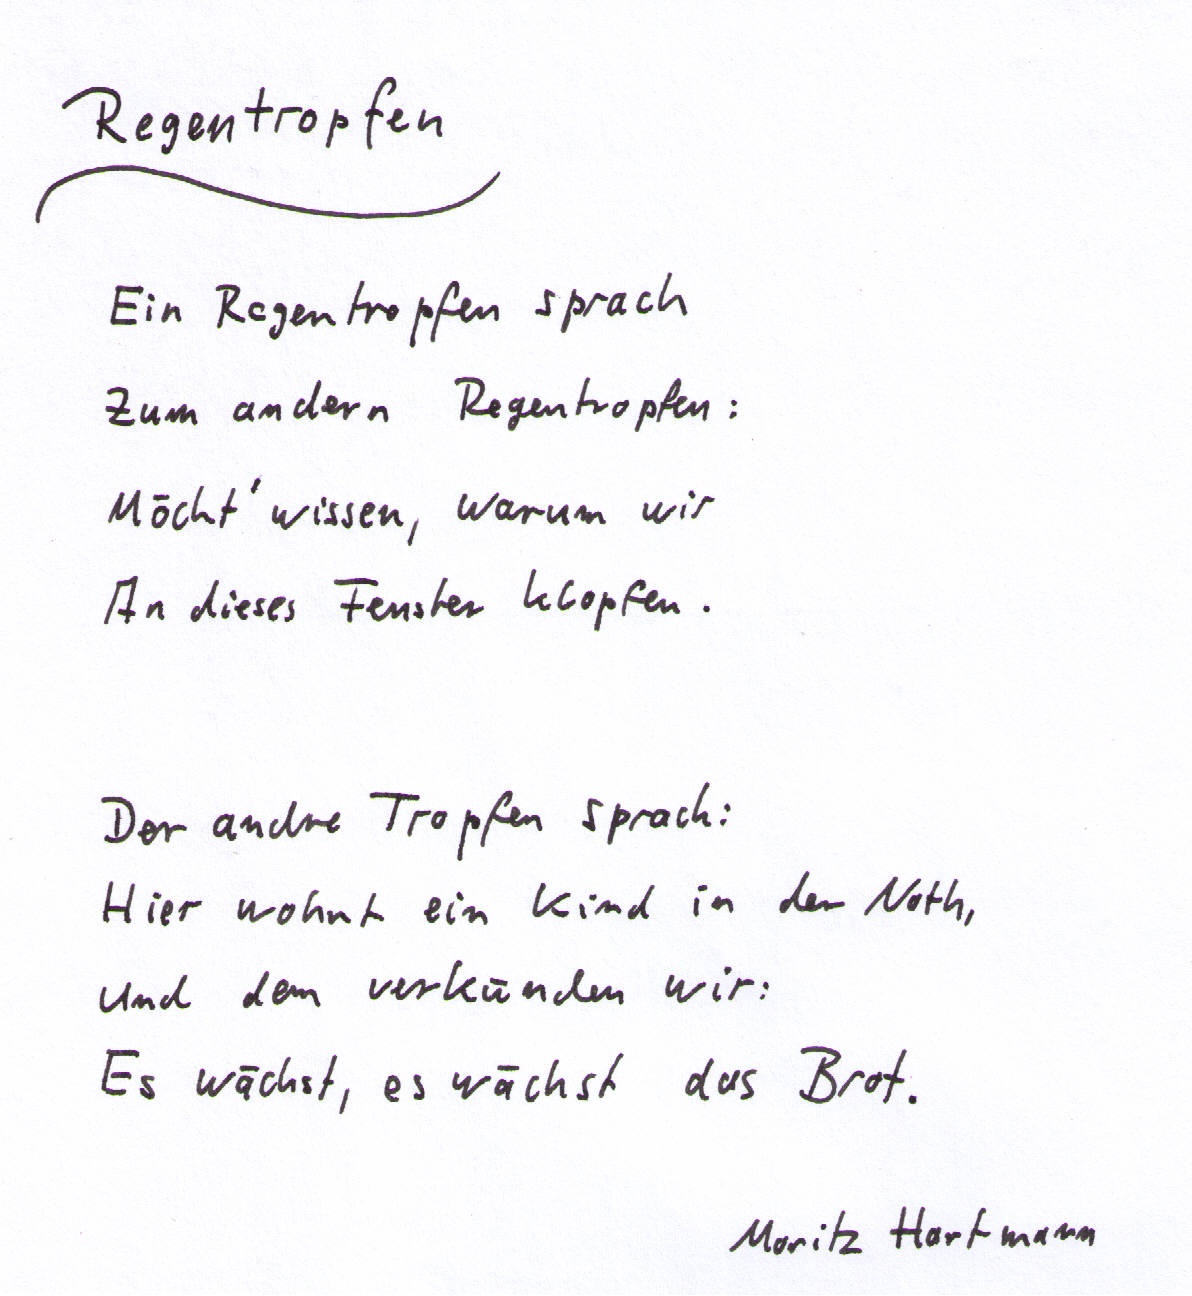 Regentropfen
Ein Regentropfen sprach
Zum andern Regentropfen:
Möcht' wissen, warum wir
An dieses Fenster klopfen.
Der andre Tropfen sprach:
Hier wohnt ein Kind in der Noth,
Und dem verkünden wir:
Es wächst, es wächst das Brot.
Moritz Hartmann